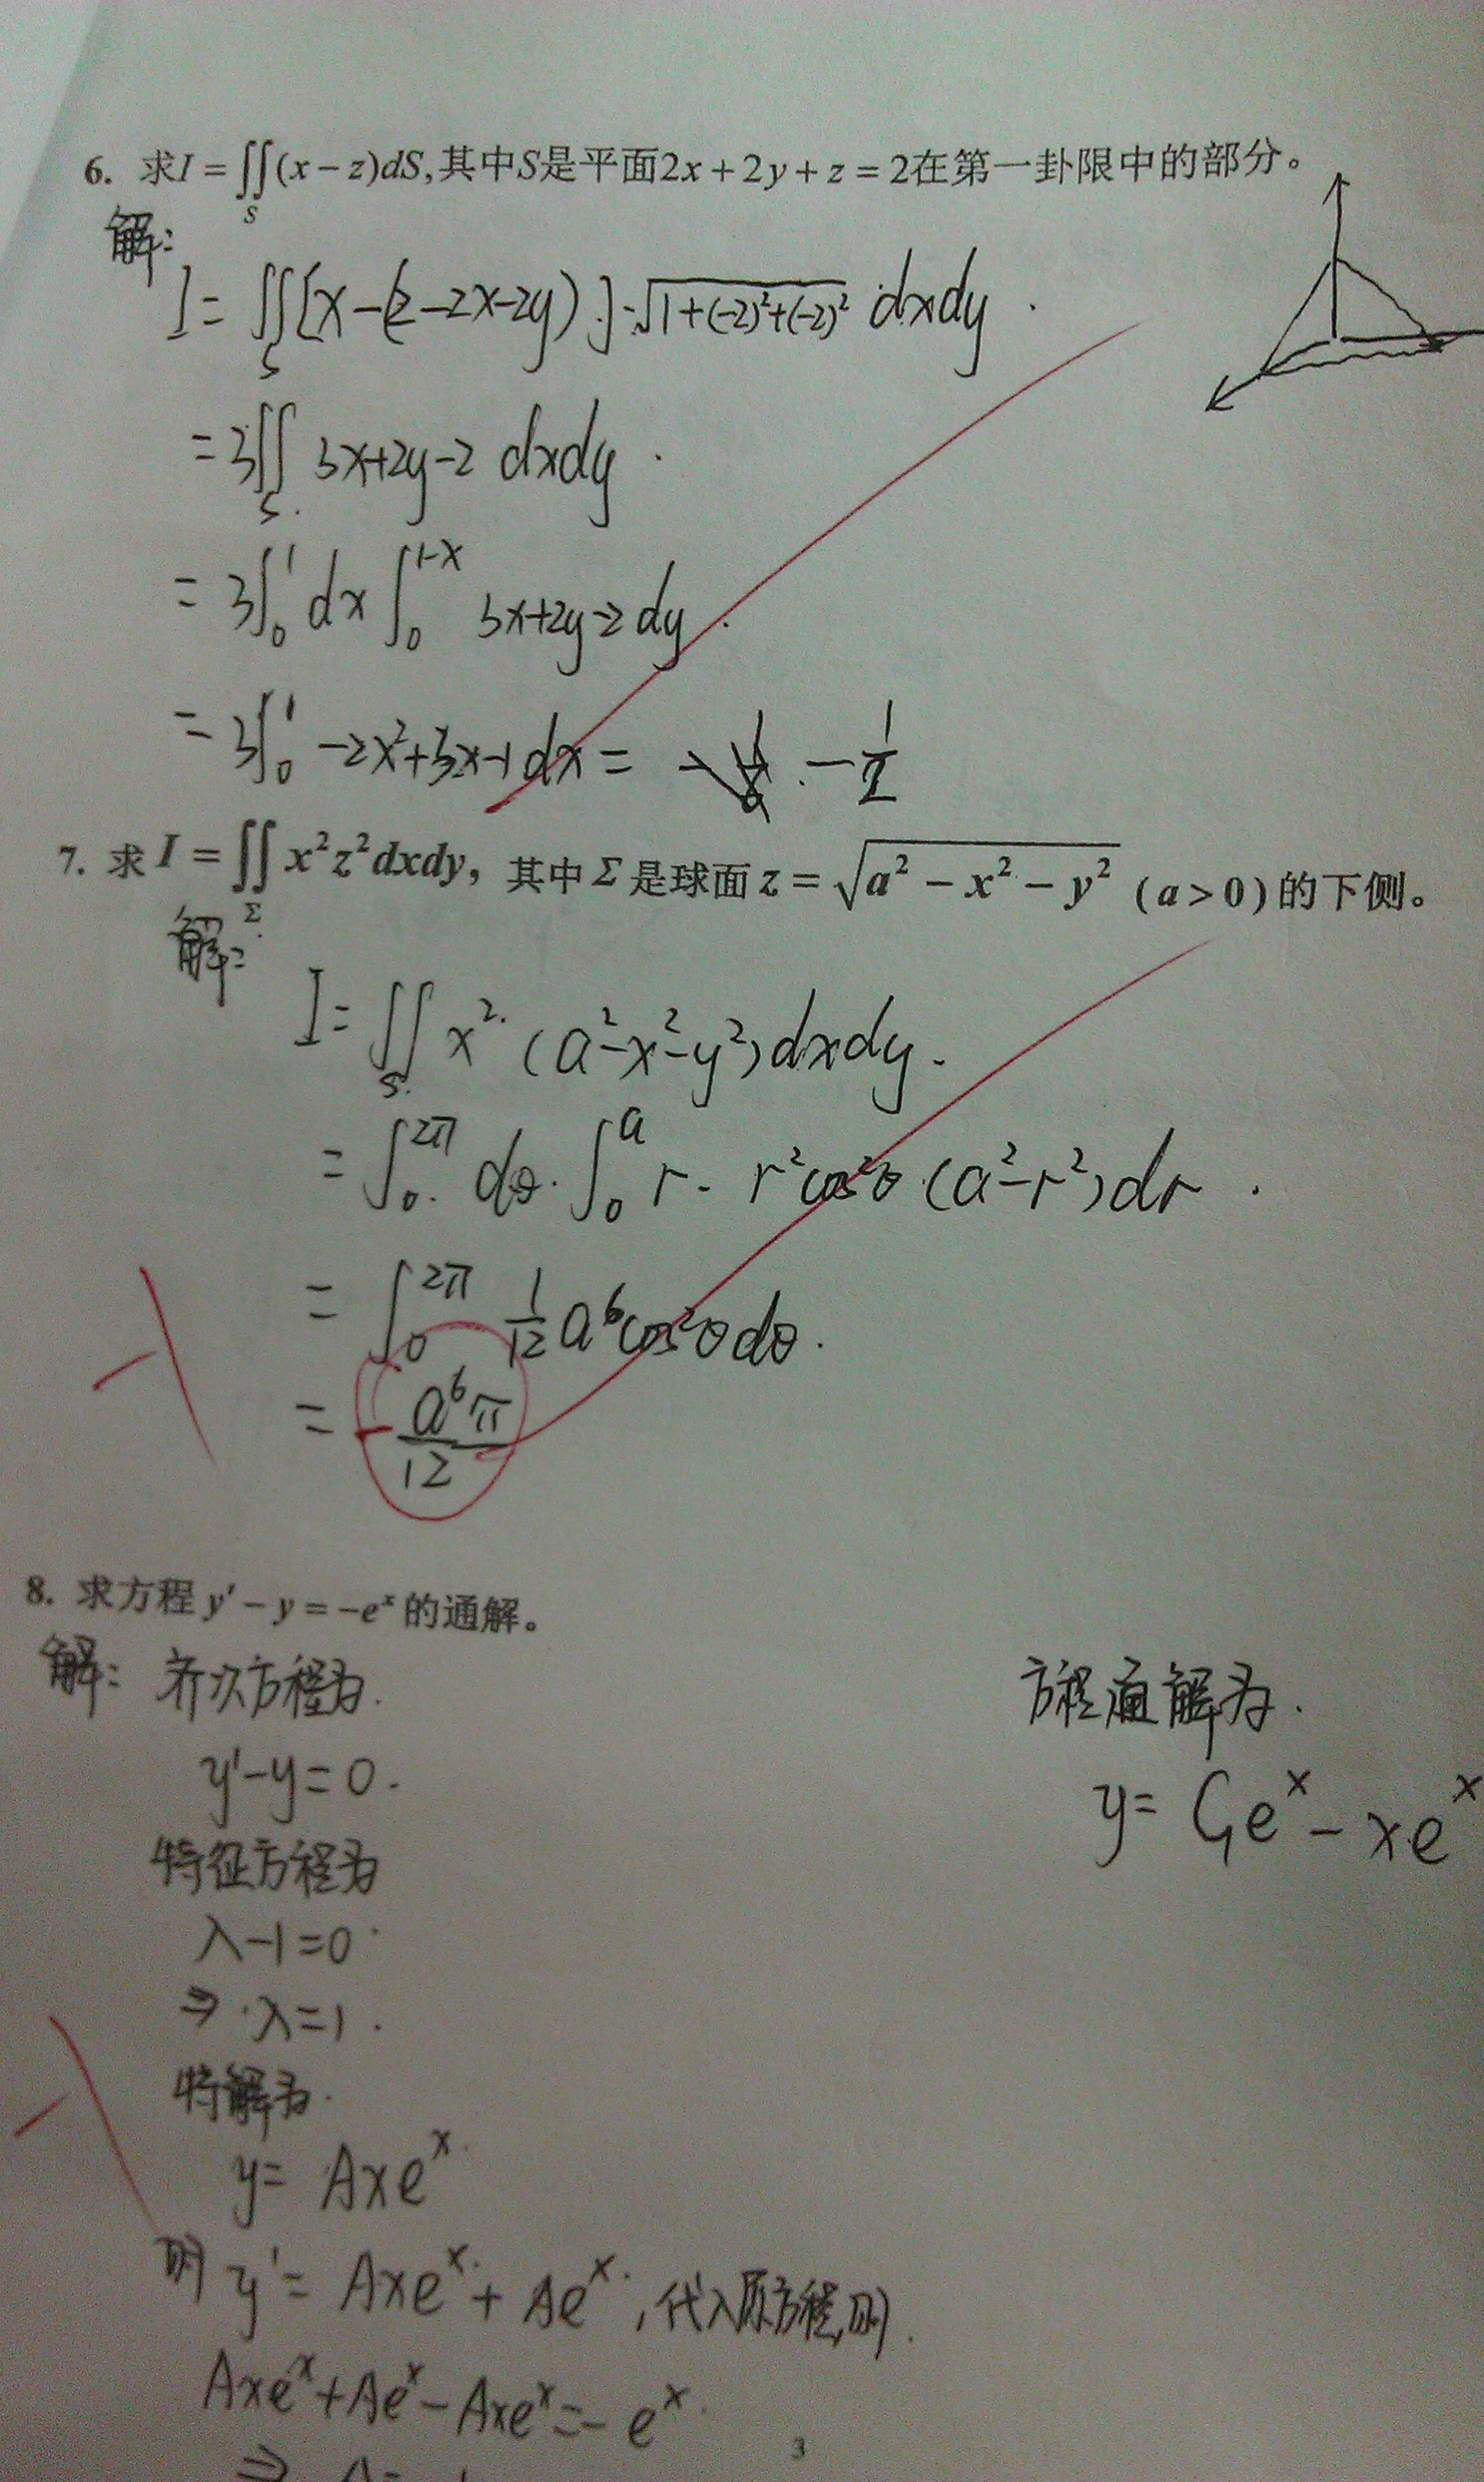 6. 求I = ∬_S (x − z)dS, 其中S是平面2x + 2y + z = 2在第一卦限中的部分。
解:
I = ∬_S [x−(2−2x−2y)]·√(1+(−2)²+(−2)²) dxdy.
= 3∬_S 3x+2y−2 dxdy.
= 3∫₀¹ dx ∫₀^(1−x) 3x+2y−2 dy.
= 3∫₀¹ −2x²+3x−1 dx = −1/2
7. 求 I = ∬_Σ x²z²dxdy, 其中 Σ 是球面 z = √(a² − x² − y²) (a > 0) 的下侧。
解:
I = ∬_S x² (a²−x²−y²)dxdy.
= ∫₀^(2π) dθ·∫₀^a r· r²cos²θ·(a²−r²)dr.
= ∫₀^(2π) 1/12 a⁶cos²θdθ.
= −a⁶π/12
8. 求方程 y′ − y = −eˣ 的通解。
解: 齐次方程为.
y′−y=0.
特征方程为
λ−1=0
⇒ λ=1.
特解为.
y= Axeˣ.
则 y′= Axeˣ + Aeˣ, 代入原方程,则.
Axeˣ+Aeˣ−Axeˣ=−eˣ.
方程通解为.
y= C₁eˣ − xeˣ
3